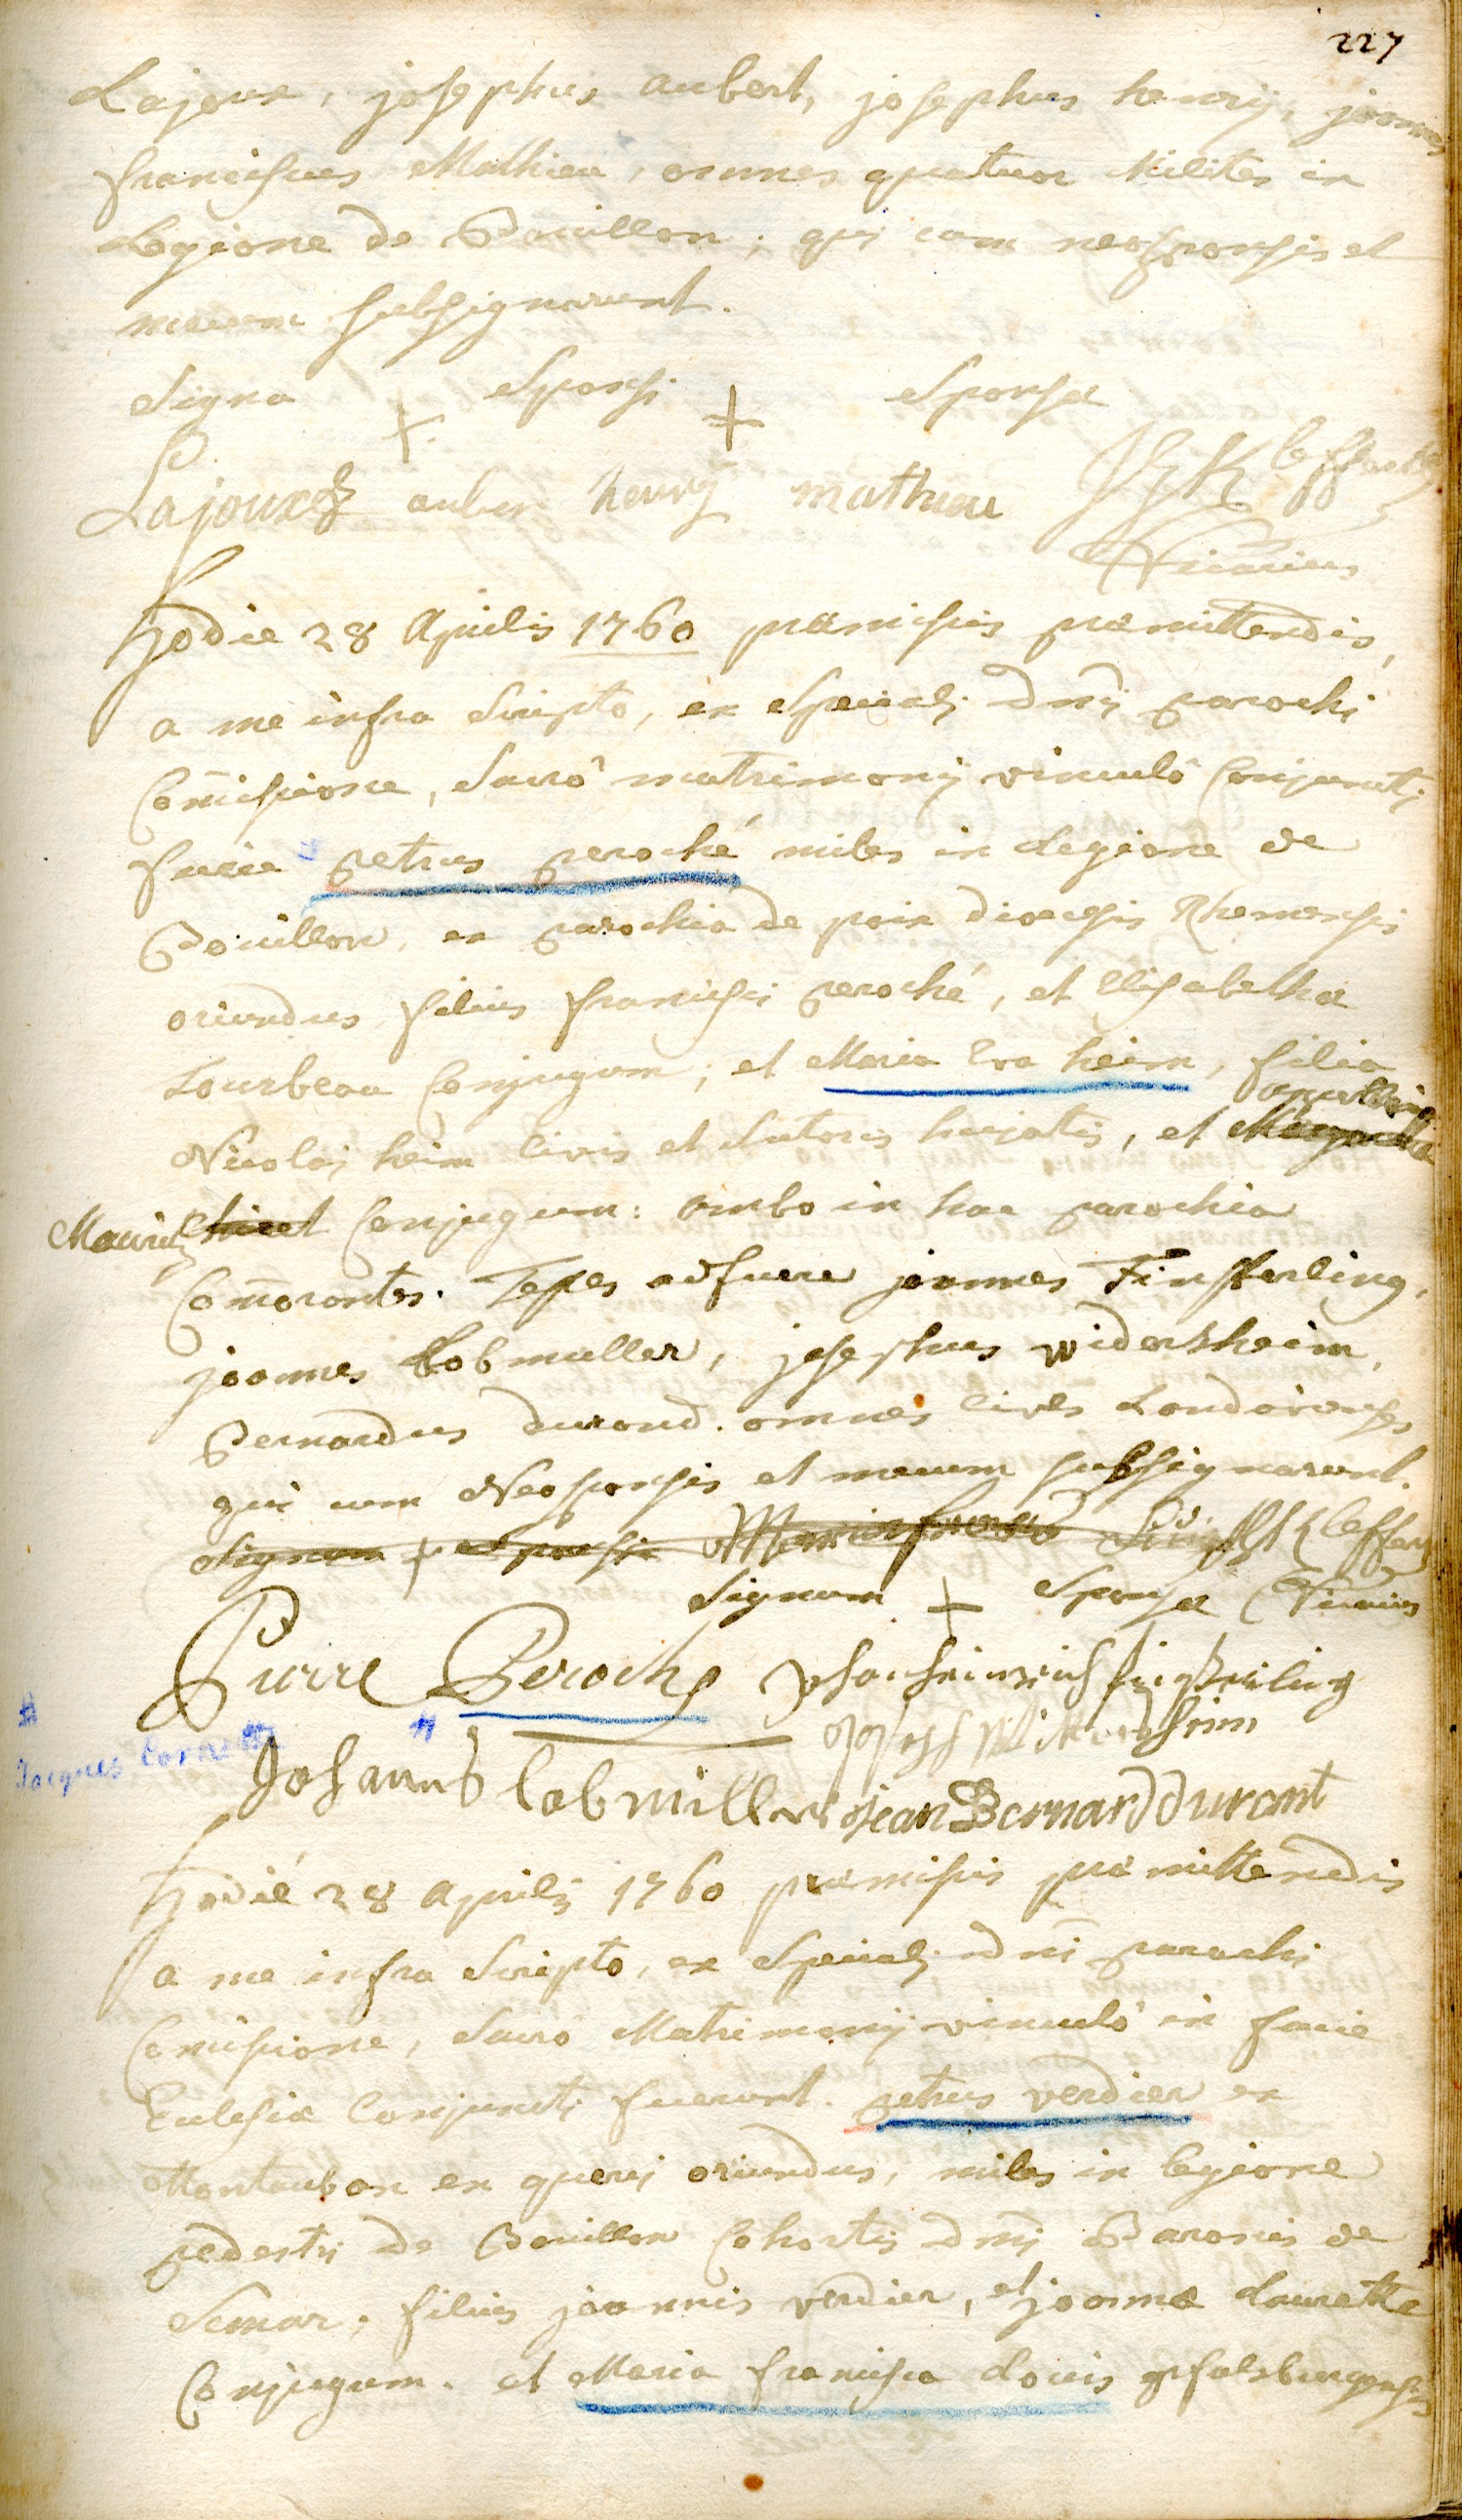 227
Lajoux, josephus aubert, josephus henrÿ, joannes
franciscus Mathieu, omnes quatuor Milites in
Legione de Bouillon, qui cum neosponsis et
mecum subsignarunt.
Signa + Sponsi + Sponsæ
Lajoux auber henrÿ mathieu
Vicarius
Hodie 28 Aprilis 1760 præmissis præmittendis,
a me infra Scripto, ex Speciali Dni parochi
Com̄issione, Sacrô matrimonij vinculô Conjuncti
fuere petrus peroché miles in Legione de
Bouillon, ex parochia de poix dioecesis Rhemensis
oriundus filius francisci peroché, et Elisabetha
Lourbeau Conjugum; et Maria Eva heim, filia
Nicolaj heim Civis et Sutoris hujatis, et
Mauritz Conjugum: ambo in hac parochia
Com̄orantes. Testes adfuere joannes Finsterling,
joannes Lobmuller, josephus widersheim,
Bernardus durand. omnes Cives Landavenses
qui cum Neosponsis et mecum subsignarunt.
Signum + Sponsi
Signum + Sponsæ Vicarius
Pierre Peroche
Johannes Lobmiller jean Bernard durant
Jacques
Hodié 28 Aprilis 1760 præmissis præmittendis
a me infra Scripto, ex Speciali Dni parochi
Comissione, Sacrô Matrimonij vinculô in facie
Ecclesiæ Conjuncti fuerunt. petrus verdier ex
Montauban en quercj oriundus, miles in legione
pedestri de Bouillon Cohortis Dni Baronis de
Semar, filius joannis verdier, et joannæ Laurette
Conjugum. et Maria francisca Louis pfalsburgensis